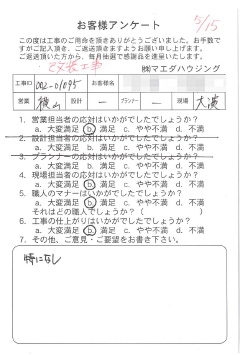 お客様アンケート
5/15
この度は工事のご用命を頂きありがとうございました。お手数で
すがご記入頂き、ご返送頂きますようお願い申し上げます。
ご返送頂いた方から、毎月抽選で感謝品を進呈いたします。
㈱マエダハウジング
工事ID 002-01095 お客様名
営業 横山 設計 ー プランナー ー 現場 大濱
1. 営業担当者の応対はいかがでしたでしょうか?
a. 大変満足 b. 満足 c. やや不満 d. 不満
2. 設計担当者の応対はいかがでしたでしょうか?
a. 大変満足 b. 満足 c. やや不満 d. 不満
3. プランナーの応対はいかがでしたでしょうか?
a. 大変満足 b. 満足 c. やや不満 d. 不満
4. 現場担当者の応対はいかがでしたでしょうか?
a. 大変満足 b. 満足 c. やや不満 d. 不満
5. 職人のマナーはいかがでしたでしょうか?
a. 大変満足 b. 満足 c. やや不満 d. 不満
それはどの職人でしょうか?( )
6. 工事の仕上がりはいかがでしたでしょうか?
a. 大変満足 b. 満足 c. やや不満 d. 不満
7. その他、ご意見・ご要望をお書き下さい。
特になし